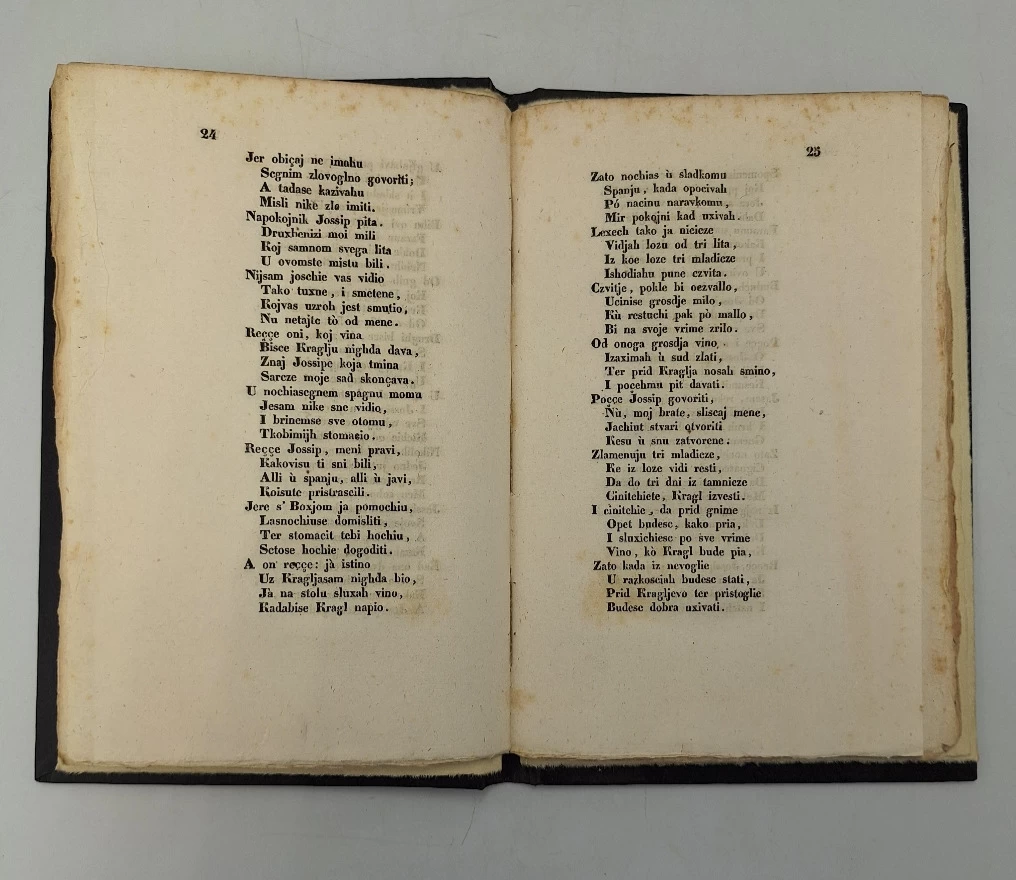 24
Jer obiçaj ne imahu
Segnim zlovoglno govoriti;
A tadase kazivahu
Misli nike zle imiti.
Napokojnik Jossip pita.
Druxbenizi moi mili
Koj samnom svega lita
U ovomste mistu bili.
Nijsam joschie vas vidio
Tako tuxne, i smetene,
Kojvas uzroh jest smutio,
Nu netajte tò od mene.
Reççe oni, koj vina
Bisce Kraglju nighda dava,
Znaj Jossipe koja tmina
Sarcze moje sad skonçava.
U nochiasegnem spagnu momu
Jesam nike sne vidio,
I brinemse sve otomu,
Tkobimijh stomacio.
Reççe Jossip, meni pravi,
Kakovisu ti sni bili,
Alli ù spanju, alli ù javi,
Koisute pristrascili.
Jere s' Boxjom ja pomochiu,
Lasnochiuse domisliti,
Ter stomacit tebi hochiu,
Sctose hochie dogoditi.
A on reççe: jà istino
Uz Kragljasam nighda bio,
Jà na stolu sluxah vino,
Kadabise Kragl napio.
25
Zato nochias ù sladkomu
Spanju, kada opocivah
Pó nacinu naravkomu,
Mir pokojni kad uxivah.
Lexech tako ja nicicze
Vidjah lozu od tri lita,
Iz koe loze tri mladicze
Ishodiahu pune czvita.
Czvitje, pokle bi oczvallo,
Ucinise grosdje milo,
Kù restuchi pak pò mallo,
Bi na svoje vrime zrilo.
Od onoga grosdja vino,
Izaximah ù sud zlati,
Ter prid Kraglja nosah smino,
I pocehmu pit davati.
Poççe Jossip govoriti,
Nù, moj brate, sliscaj mene,
Jachiut stvari otvoriti
Kesu ù snu zatvorene.
Zlamenuju tri mladicze,
Ke iz loze vidi resti,
Da do tri dni iz tamnicze
Cinitchiete, Kragl izvesti.
I cinitchie, da prid gnime
Opet budesc, kako pria,
I sluxichiesc po sve vrime
Vino, kò Kragl bude pia,
Zato kada iz nevoglie
U razkosciah budesc stati,
Prid Kragljevo ter pristoglie
Budesc dobra uxivati.